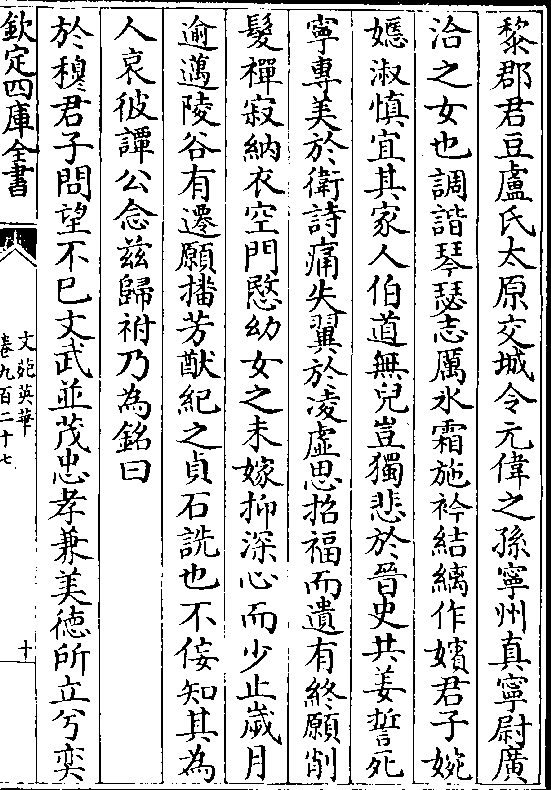 黎郡君豆盧氏太原交城令元偉之孫寧州真寧尉廣
洽之女也調諧琴瑟志厲氷霜施衿結縭作嬪君子婉
嫕淑慎宜其家人伯道無兒豈獨悲於晉史共姜誓死
寧專美於衛詩痛失翼於凌虚思招福而遺有終願削
髮禪寂納衣空門愍幼女之未嫁抑深心而少止嵗月
逾邁陵谷有遷願播芳猷紀之貞石詵也不佞知其為
人哀彼譚公念兹歸祔乃為銘曰
於穆君子問望不已文武並茂忠孝兼美徳所立兮奕
欽定四庫全書
文苑英華
卷九百二十七
十